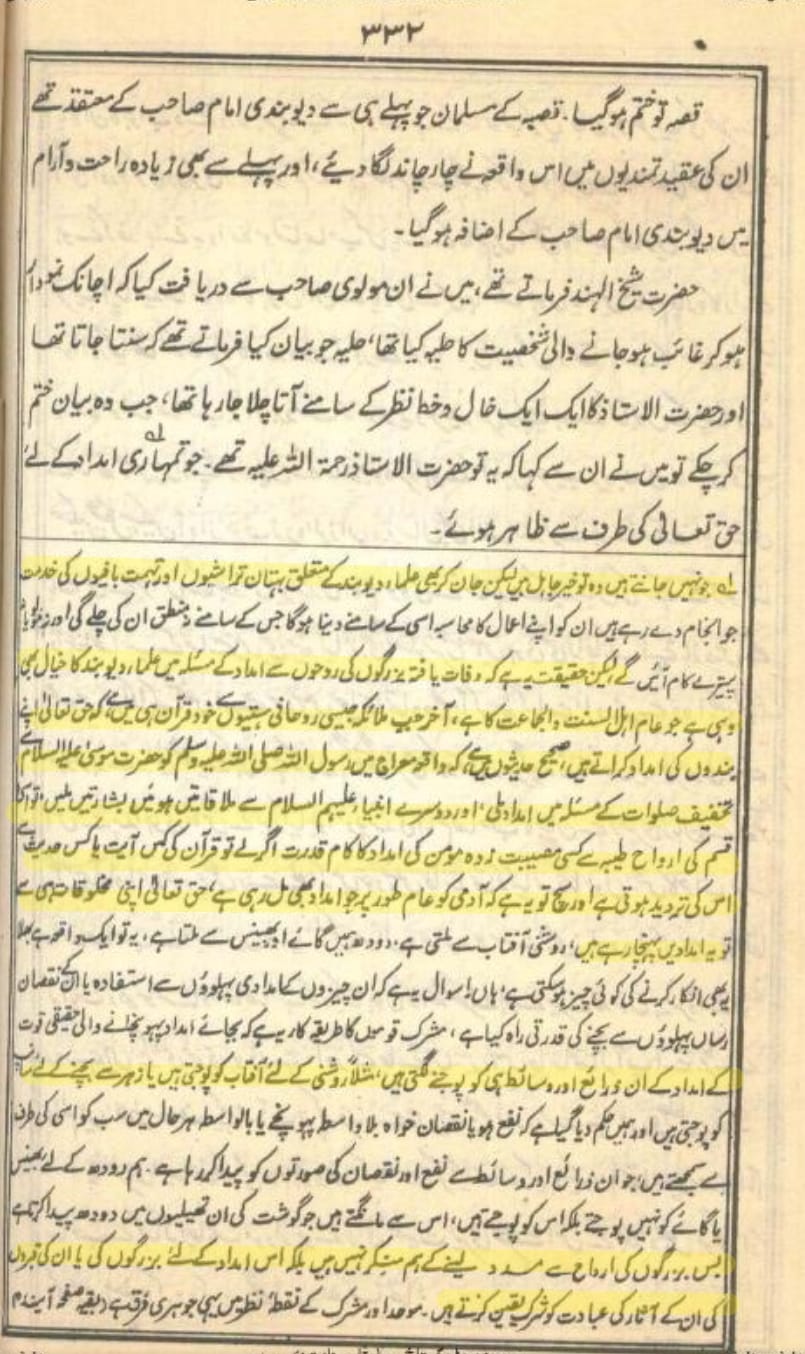 ۳۳۲
قصہ تو ختم ہو گیا۔ قصبہ کے مسلمان جو پہلے ہی سے دیوبندی امام صاحب کے معتقد تھے
ان کی عقیدتمندیوں میں اس واقعہ نے چار چاند لگا دیئے، اور پہلے سے بھی زیادہ راحت و آرام
میں دیوبندی امام صاحب کے اضافہ ہو گیا۔
حضرت شیخ الہند فرماتے تھے، میں نے ان مولوی صاحب سے دریافت کیا کہ اچانک نمودار
ہو کر غائب ہو جانے والی شخصیت کا حلیہ کیا تھا، حلیہ جو بیان کیا فرماتے تھے کہ سنتا جاتا تھا
اور حضرت الاستاذ کا ایک ایک خال و خط نظر کے سامنے آتا چلا جا رہا تھا، جب وہ بیان ختم
کر چکے تو میں نے ان سے کہا کہ یہ تو حضرت الاستاذ رحمۃ اللہ علیہ تھے۔ جو تمہاری امداد کے لئے
حق تعالیٰ کی طرف سے ظاہر ہوئے۔
لہ جو نہیں جانتے ہیں وہ تو خیر جاہل ہیں لیکن جان کر بھی علماء دیوبند کے متعلق بہتان تراشیوں اور تہمت بافیوں کی خدمت
جو انجام دے رہے ہیں ان کو اپنے اعمال کا محاسبہ اسی کے سامنے دینا ہوگا جس کے سامنے نہ منطق ان کی چلے گی اور نہ
پینترے کام آئیں گے، لیکن حقیقت یہ ہے کہ وفات یافتہ بزرگوں کی روحوں سے امداد کے مسئلہ میں علماء دیوبند کا خیال بھی
وہی ہے جو عام اہل السنت والجماعت کا ہے، آخر جب ملائکہ جیسی روحانی ہستیوں سے خود قرآن ہی میں ہے، کہ حق تعالیٰ اپنے
بندوں کی امداد کراتے ہیں، صحیح حدیثوں میں ہے، کہ واقعہ معراج میں رسول اللہ صلی اللہ علیہ وسلم کو حضرت موسیٰ علیہ السلام سے
تخفیف صلوات کے مسئلہ میں امداد ملی، اور دوسرے انبیاء علیہم السلام سے ملاقاتیں ہوئیں بشارتیں ملیں، تو اس
قسم کی ارواح طیبہ سے کسی مصیبت زدہ مومن کی امداد کا کام قدرت اگر لے تو قرآن کی کس آیت یا کس حدیث سے
اس کی تردید ہوتی ہے اور سچ تو یہ ہے کہ آدمی کو عام طور پر جو امداد بھی مل رہی ہے، حق تعالیٰ اپنی مخلوقات ہی سے
تو یہ امدادیں پہنچا رہے ہیں، روشنی آفتاب سے ملتی ہے، دودھ ہمیں گائے اور بھینس سے ملتا ہے، یہ تو ایک واقعہ ہے بھلا
یہ بھی انکار کرنے کی کوئی چیز ہو سکتی ہے، ہاں! سوال یہ ہے کہ ان چیزوں کے امدادی پہلوؤں سے استفادہ یا انکے نقصان
رساں پہلوؤں سے بچنے کی قدرتی راہ کیا ہے، مشرک قوموں کا طریقہ کار یہ ہے کہ بجائے امداد پہونچانے والی حقیقی قوت
کے امداد کے ان ذرائع اور وسائط ہی کو پوجنے لگتی ہیں، مثلاً روشنی کے لئے آفتاب کو پوجتی ہیں یا زہر سے بچنے کے لئے سانپ
کو پوجتی ہیں اور ہمیں حکم دیا گیا ہے کہ نفع ہو یا نقصان خواہ بلا واسطہ پہونچے یا بالواسطہ ہر حال میں سب کو اسی کی طرف
سے سمجھتے ہیں، جو ان ذرائع اور وسائط سے نفع اور نقصان کی صورتوں کو پیدا کر رہا ہے۔ ہم دودھ کے لئے بھینس
یا گائے کو نہیں پوجتے بلکہ اس کو پوجتے ہیں، اس سے مانگتے ہیں جو گوشت کی ان تھیلیوں میں دودھ پیدا کرتا ہے
پس بزرگوں کی ارواح سے مدد لینے کے ہم منکر نہیں ہیں بلکہ اس امداد کے لئے بزرگوں کی یا ان کی قبروں
کی ان کے آثار کی عبادت کو شرک یقین کرتے ہیں۔ موحد اور مشرک کے نقطۂ نظر میں یہی جوہری فرق ہے (بقیہ صفحہ آیندہ